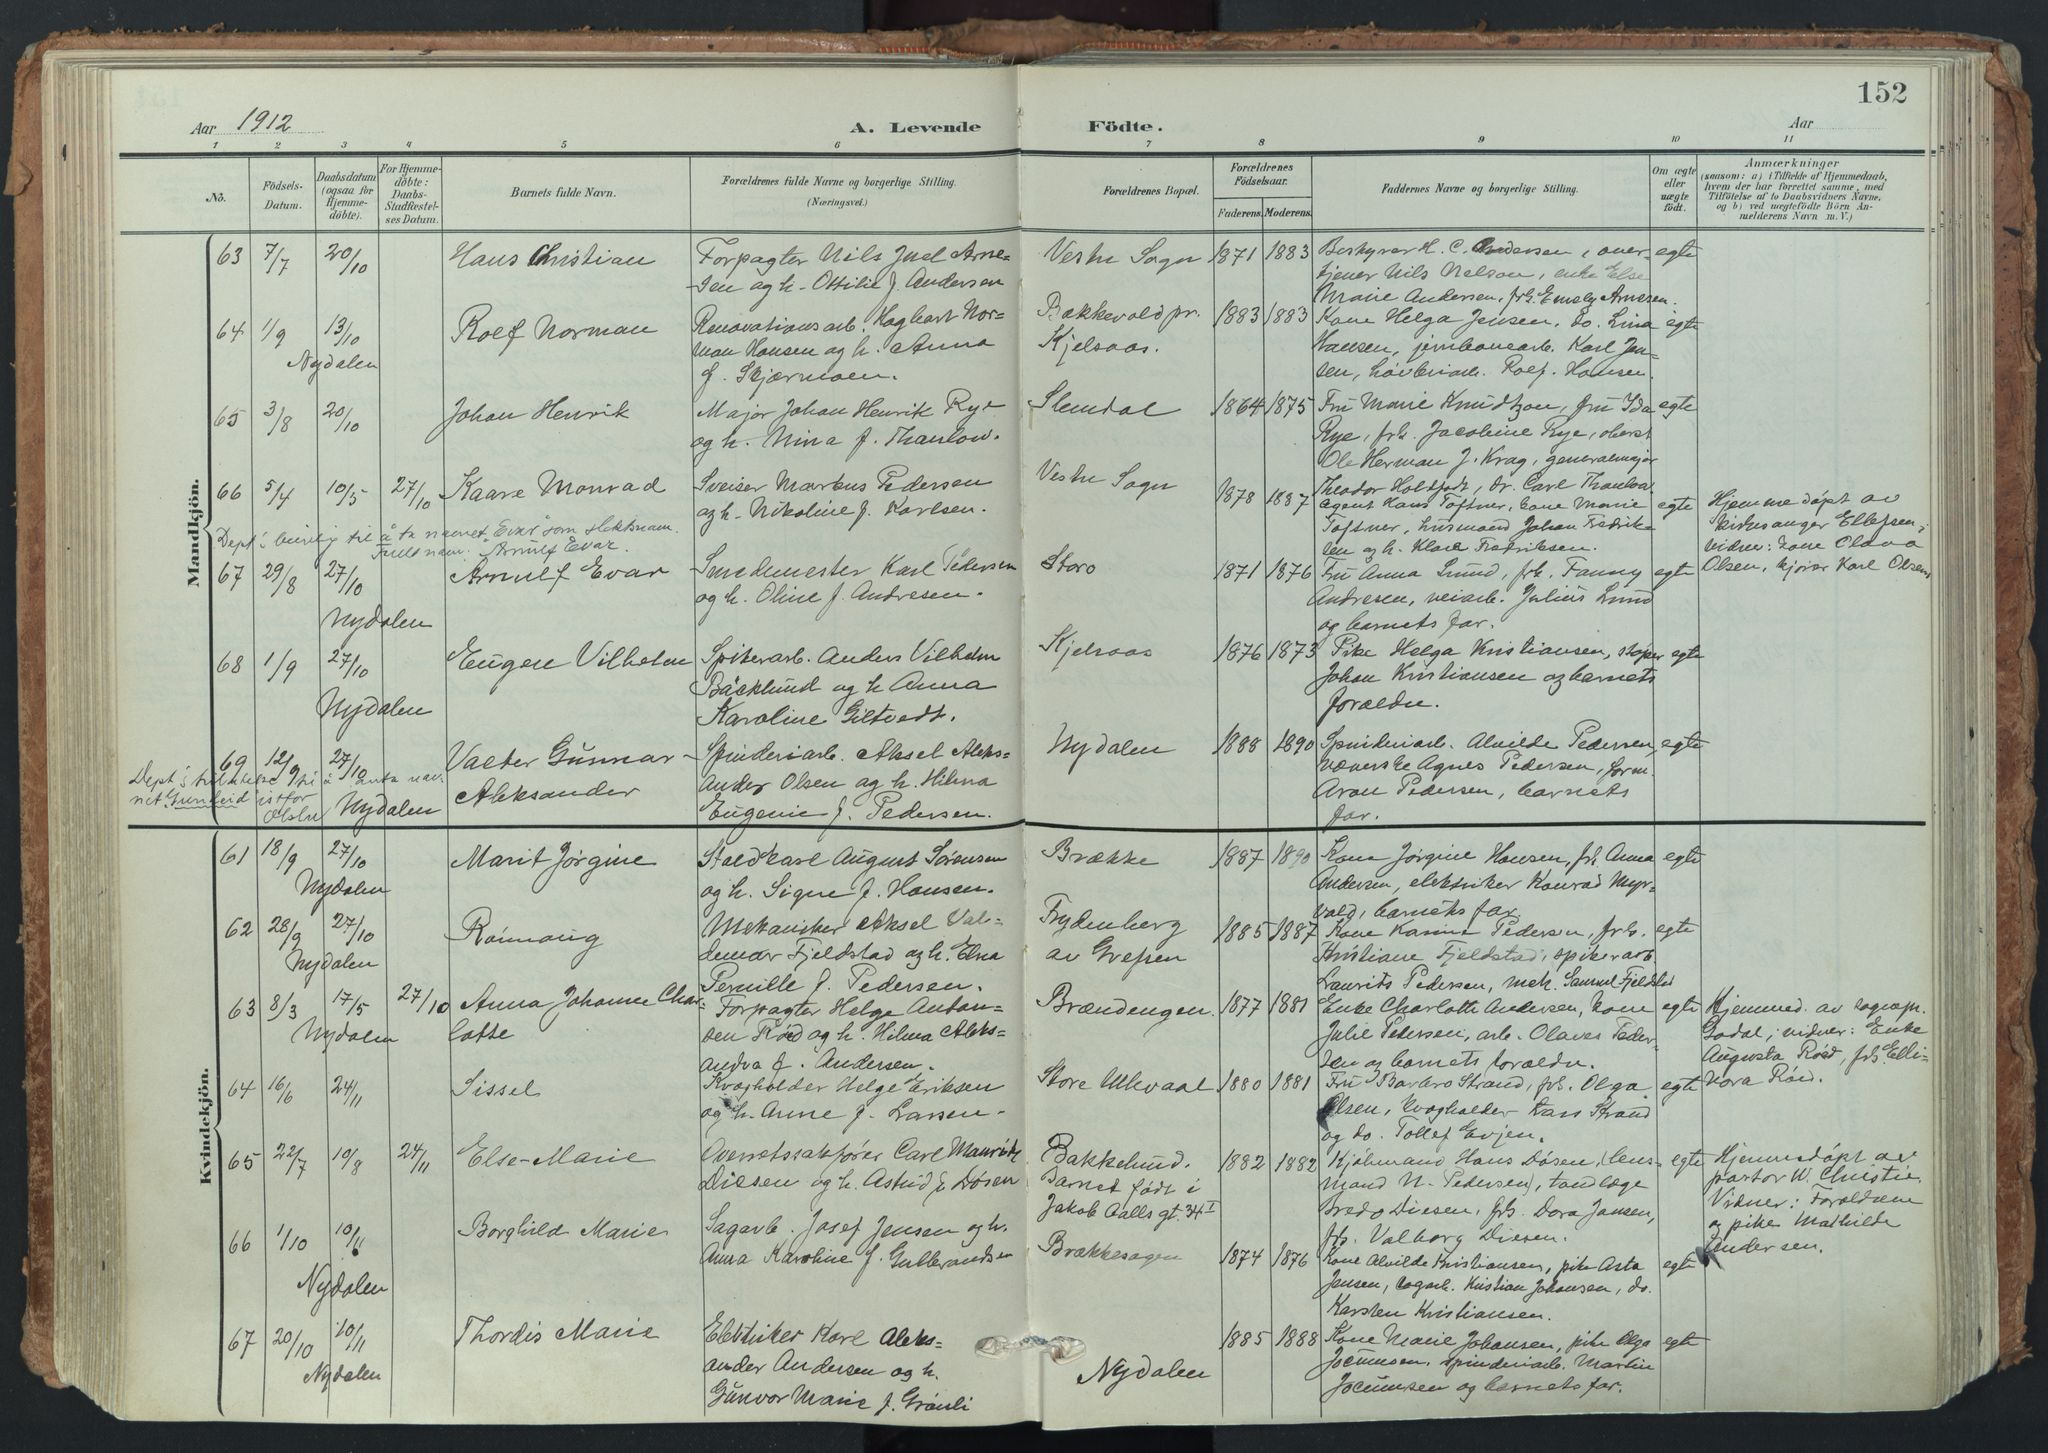 152
Aar 1912
A. Levende Födte.
Aar
1 2 3 4 5 6 7 8 9 10 11
No.
Födsels-Datum.
Daabsdatum (ogsaa for Hjemme-döbte).
For Hjemme-döbte: Daabs-Stadfæstel-ses Datum.
Barnets fulde Navn.
Forældrenes fulde Navne og borgerlige Stilling. (Næringsvei.)
Forældrenes Bopæl.
Forældrenes Födselsaar.
Faderens. Moderens.
Faddernes Navne og borgerlige Stilling.
Om ægte eller uægte födt.
Anmærkninger
(saasom: a) i Tilfælde af Hjemmedaab,
hvem der har forrettet samme, med
Tilföielse af to Daabsvidners Navne,
og b) ved uægtefödte Börn An-
melderens Navn m. V.)
Mandkjön.
63 7/7 20/10 Hans Christian
Forpagter Nils Juel Arne-
sen og h. Ottilie f. Andersen
Vestre Sogn 1871 1883
Bestyrer H. C. Andersen, over-
tjener Nils Nelson, enke Else
Marie Andersen, frk. Emely Arnesen.
egte
64 1/9 13/10 Nydalen Rolf Norman
Renovationsarb. Hagbart Nor-
man Hansen og h. Anna
f. Skjærmoen.
Bakkevoldpr.
Kjelsaas.
1883 1883
Kone Helga Jensen, do. Lina
Hansen, jernbanearb. Karl Jen-
sen, høvleriarb. Rolf Hansen.
egte
65 3/8 20/10 Johan Henrik
Major Johan Henrik Rye
og h. Nina f. Thaulow.
Slemdal 1864 1875
Fru Marie Knudtzon, fru Ida
Rye, frk. Jacobine Rye, oberst
Ole Herman J. Krag, generalmajor
Theodor Holtfodt, dr. Carl Thaulow
egte
66 5/4 10/5 27/10 Kaare Monrad
Sveiser Markus Pedersen
og h. Nikoline f. Karlsen.
Vestre Sogn 1878 1887
Agent Hans Toftner, kone Marie
Toftner, husmand Johan Fredrik-
sen og h. Klara Fredriksen.
egte
Hjemmedøpt av
kirkesanger Ellefsen,
vidner: kone Olava
Olsen, kjører Karl Olsen
Dept's bevilg til å ta navnet "Evar" som slektsnavn.
Fullt navn: Arnulf Evar.
67 29/8 27/10 Nydalen Arnulf Evar
Smedmester Karl Pedersen
og h. Oline f. Andresen.
Storo 1871 1876
Fru Anna Lund, frk. Fanny
Andresen, veiarb. Julius Lund
og barnets far.
egte
68 1/9 27/10 Nydalen Eugen Vilhelm
Spikerarb. Anders Vilhelm
Bäcklund og h Anna
Karoline Giltvedt.
Kjelsaas 1876 1873
Pike Helga Kristiansen, støper
Johan Kristiansen og barnets
foreldre.
egte
69 12/9 27/10 Nydalen Valter Gunnar
Aleksander
Dept's tillatelse til å anta nav-
net "Gunheid" istfor
Olsen
Spinderiarb. Aksel Aleks-
ander Olsen og h. Hilma
Eugenie f. Pedersen.
Nydalen 1888 1890
Spinderiarb. Alvilde Pedersen,
væverske Agnes Pedersen, form.
Aron Pedersen, barnets
far.
egte
Kvindekjön.
61 18/9 27/10 Nydalen Marit Jørgine
Staldkarl August Sørensen
og h. Signe f. Hansen.
Brække 1887 1890
Kone Jørgine Hansen, frk. Anna
Andersen, elektriker Konrad Myr-
vold, barnets far.
egte
62 28/9 27/10 Nydalen Rønnaug
Mekaniker Aksel Val-
demar Fjeldstad og h. Elna
Pernille f. Pedersen.
Frydenberg
av Grefsen
1885 1887
Kone Karine Pedersen, frk.
Kristiane Fjeldstad, spikerarb.
Laurits Pedersen, mek. Samuel Fjeldstad
egte
63 8/3 17/5 27/10 Nydalen Anna Johanne Char-
lotte
Forpagter Helge Anton-
sen Røed og h. Hilma Aleks-
andra f. Andersen.
Brændengen 1877 1881
Enke Charlotte Andersen, kone
Julie Pedersen, arb. Olaves Peder-
sen og barnets foreldre.
egte
Hjemmed. av sognepr.
Godal; vidner: Enke
Augusta Røed, frk. Elli-
nora Røed.
64 16/6 24/11 Sissel
Kvægholder Helge Eriksen
og h. Anne f. Larsen.
Store Ullevaal 1880 1881
Fru Barbro Strand, frk. Olga
Olsen, kvægholder Lars Strand
og do. Tollef Evjen.
egte
65 22/7 10/8 24/11 Else-Marie
Overretssakfører Carl Mauritz
Diesen og h. Astrid f. Døsen
Bakkelund.
Barnet født i
Jakob Aalls gt. 34 I
1882 1882
Kjøbmand Hans Døsen, (lens-
mand N. Pedersen), tandlæge
Bredo Diesen, frk. Dora Jansen,
frk. Valborg Diesen.
egte
Hjemmedøpt av
pastor W. Christie
Vidner: Foreldrene
og pike Mathilde
Andersen.
66 1/10 10/11 Nydalen Borghild Marie
Sagarb. Josef Jensen og h.
Anna Karoline f. Gulbrandsen
Brækkesagen 1874 1876
Kone Alvilde Kristiansen, pike Asta
Jensen, sagarb. Kristian Johansen, do.
Karsten Kristiansen.
egte
67 20/10 10/11 Nydalen Thordis Marie
Elektriker Karl Aleks-
ander Andersen og h.
Gunvor Marie f. Grønli
Nydalen 1885 1888
Kone Marie Johansen, pike Olga
Jocumsen, spinderiarb. Martin
Jocumsen og barnets far.
egte